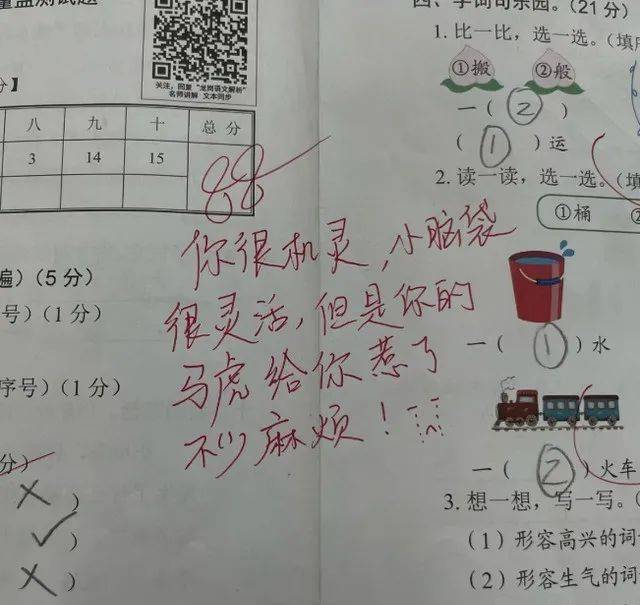 量监测试题
关注，回复“龙岗语文解析”
名师讲解 文本同步
分】
八 九 十 总分
3 14 15
88
你很机灵，小脑袋
很灵活，但是你的
马虎给你惹了
不少麻烦！
遍）（5 分）
号）（1 分）
序号）（1 分）
分）
× ）
√ ）
× ）
四、字词句乐园。（21 分）
1. 比一比，选一选。（填序
①搬 ②般
一（ ② ）
（ ① ）运
2. 读一读，选一选。（填
①桶 ②
一（ ① ）水
一（ ② ）火车
3. 想一想，写一写。（
（1）形容高兴的词
（2）形容生气的词